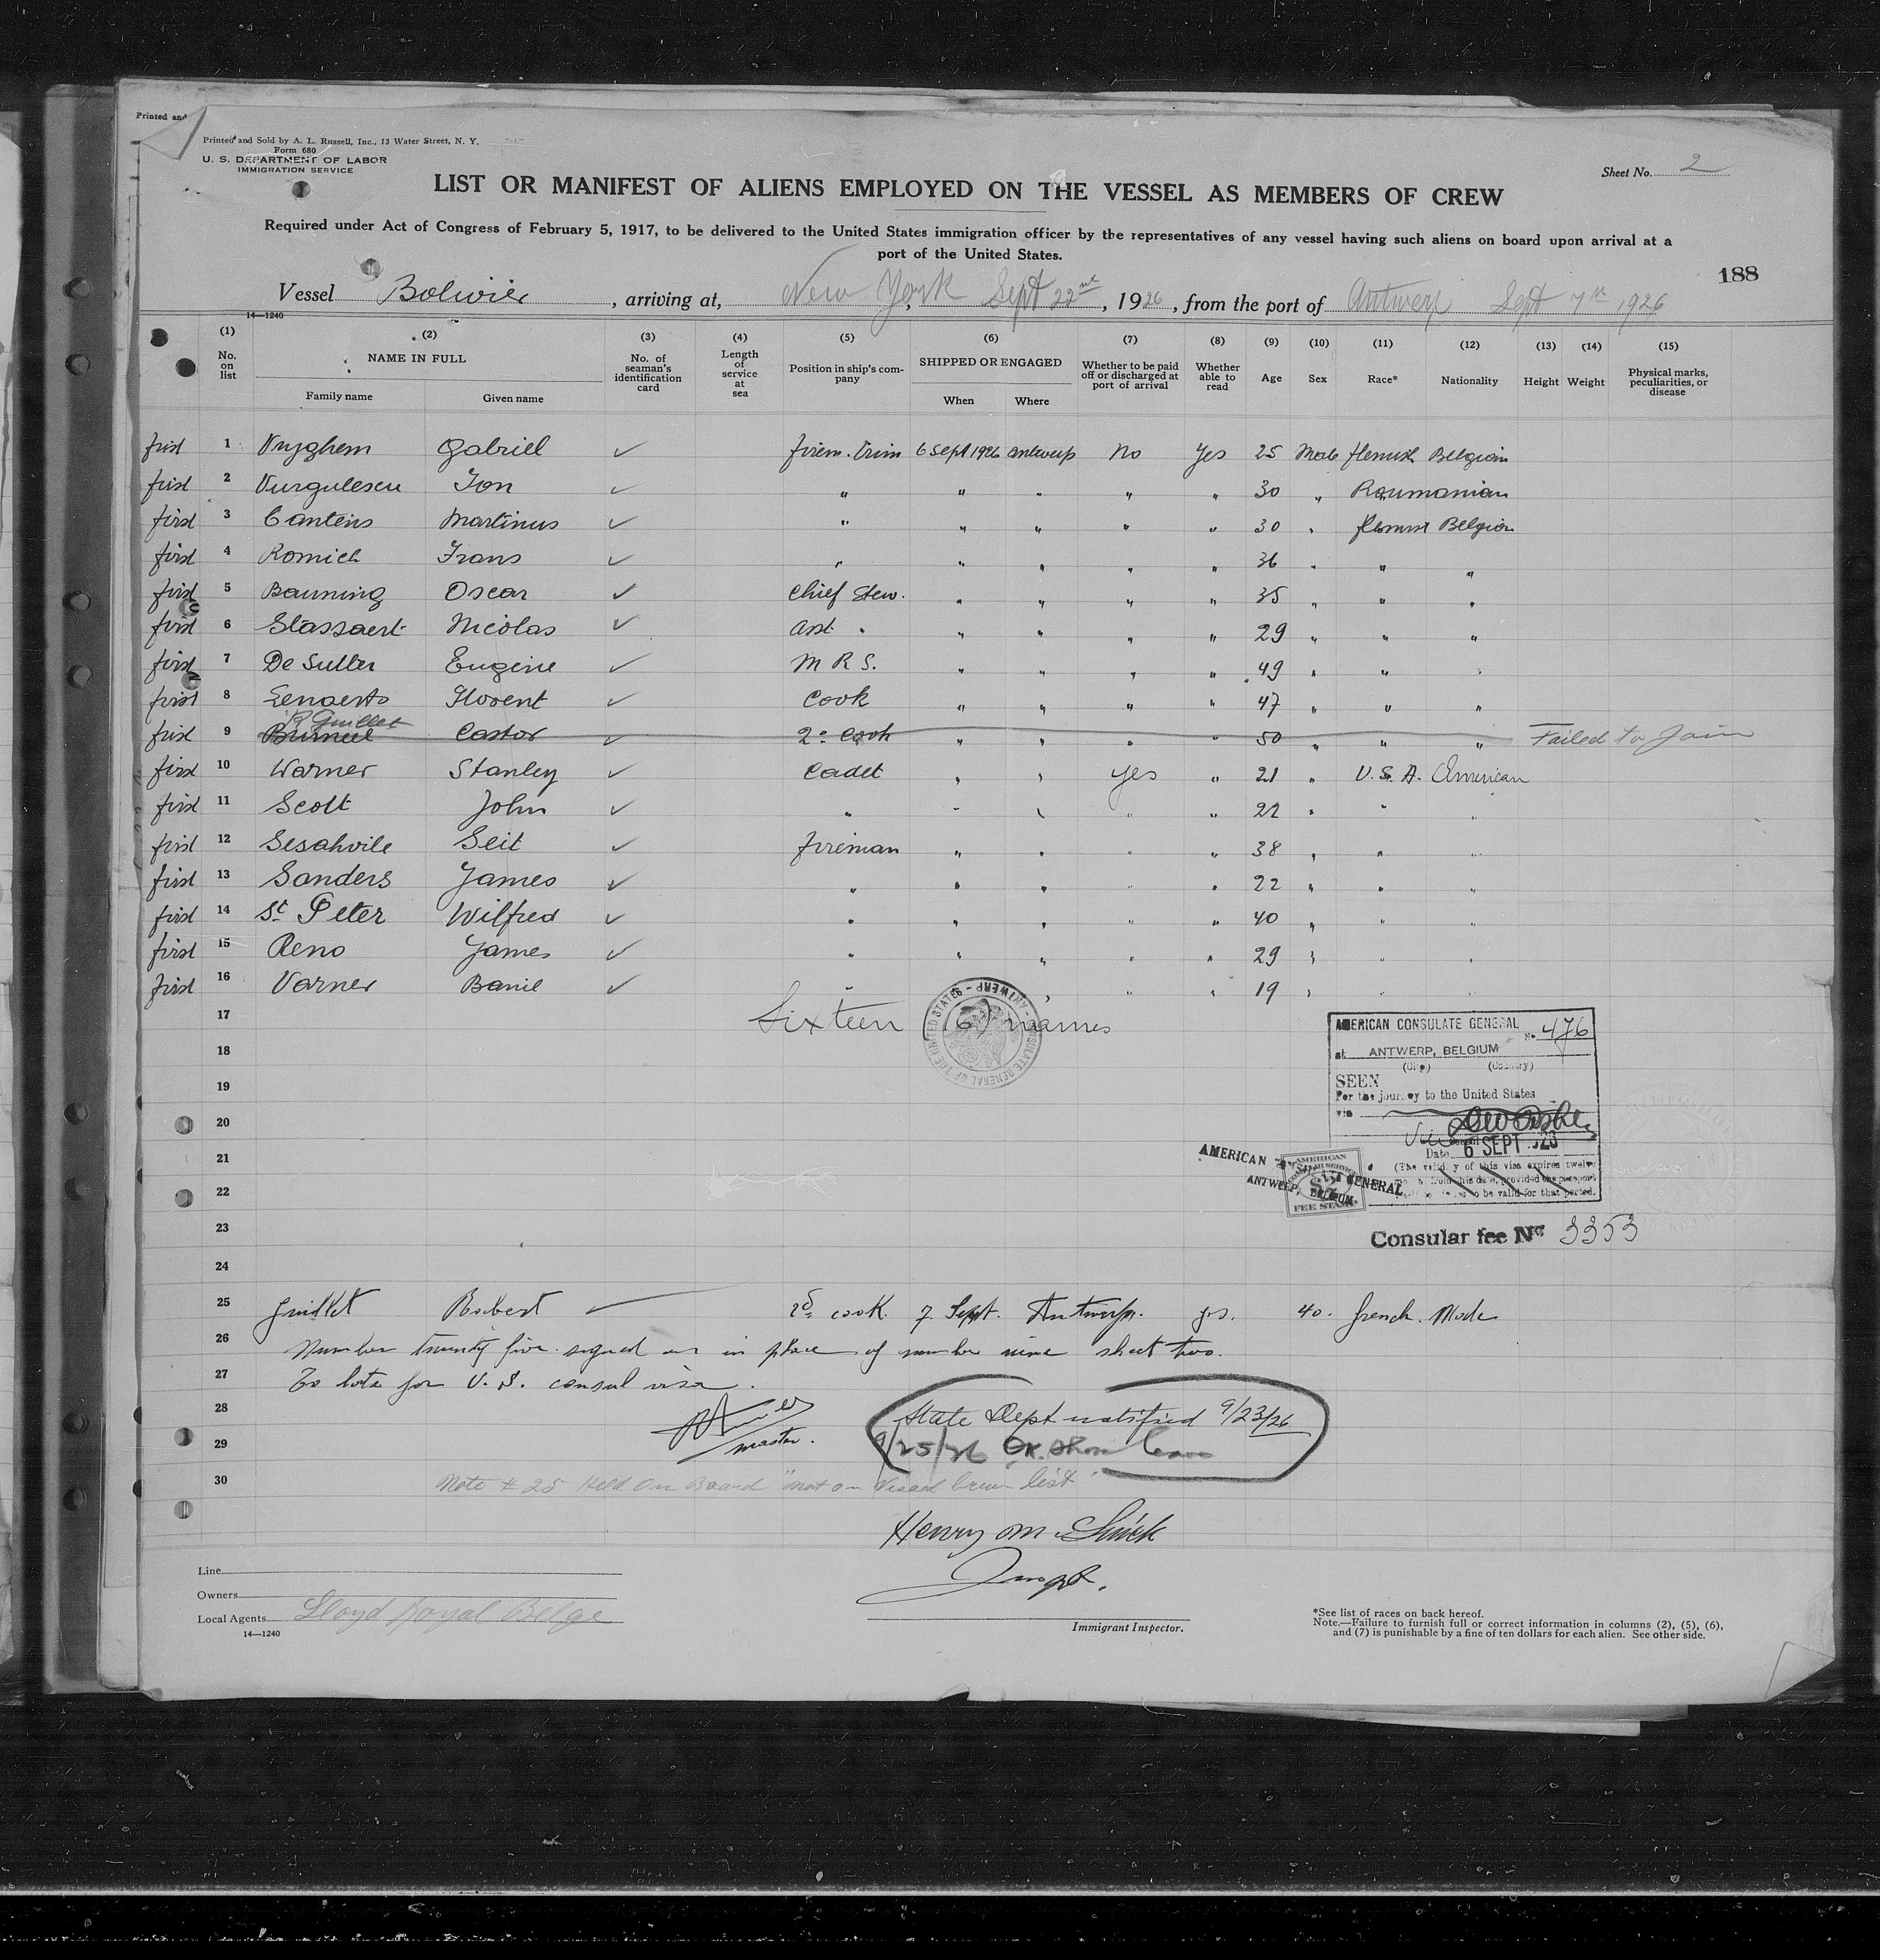 Printed and
Printed and Sold by A. L. Russell, Inc., 13 Water Street, N. Y.
Form 680
U. S. DEPARTMENT OF LABOR
IMMIGRATION SERVICE
Sheet No. 2
LIST OR MANIFEST OF ALIENS EMPLOYED ON THE VESSEL AS MEMBERS OF CREW
Required under Act of Congress of February 5, 1917, to be delivered to the United States immigration officer by the representatives of any vessel having such aliens on board upon arrival at a
port of the United States.
188
Vessel Bolivier, arriving at, New York, Sept 22nd, 1926, from the port of Antwerp Sept 7th 1926
14—1240
(1) (2) (3) (4) (5) (6) (7) (8) (9) (10) (11) (12) (13) (14) (15)
No. on list NAME IN FULL Family name Given name No. of seaman's identification card Length of service at sea Position in ship's company SHIPPED OR ENGAGED When Where Whether to be paid off or discharged at port of arrival Whether able to read Age Sex Race* Nationality Height Weight Physical marks, peculiarities, or disease
first 1 Vryghem Gabriel ✓ firem. Trim 6 Sept 1926 Antwerp No Yes 25 Male flemish Belgian
first 2 Vurgulescu Ion ✓ " " " " " 30 " Roumanian
first 3 Cantens Martinus ✓ " " " " " 30 " flemish Belgian
first 4 Romich Frans ✓ " " " " " 36 " " "
first 5 Bauning Oscar ✓ Chief Stew. " " " " 35 " " "
first 6 Stassaert Nicolas ✓ Asst. " " " " " 29 " " "
first 7 De Sutter Eugène ✓ M R S. " " " " 49 " " "
first 8 Lenaerts Florent ✓ Cook " " " " 47 " " "
R Guillet
first 9 Castor ✓ 2e Cook " " " " 50 " " " Failed to Join
first 10 Warner Stanley ✓ Cadet " " Yes " 21 " U.S.A. American
first 11 Scott John ✓ " " " " " 22 " " "
first 12 Sesahvile Seit ✓ fireman " " " " 38 " " "
first 13 Sanders James ✓ " " " " " 22 " " "
first 14 St Peter Wilfred ✓ " " " " " 40 " " "
first 15 Reno James ✓ " " " " " 29 " " "
first 16 Varner Banie ✓ " " " " " 19 " " "
17 Sixteen (16) names
18
19
20
21
22
23
24
CONSULATE GENERAL OF THE UNITED STATES - ANTWERP -
AMERICAN CONSULATE GENERAL No. 476
at ANTWERP, BELGIUM
(City) (Country)
SEEN
For the journey to the United States
via
Date 6 SEPT 1926
(The validity of this visa expires twelve
months from this date, provided the passport
continues to be valid for that period.
AMERICAN CONSULATE GENERAL
ANTWERP, BELGIUM
AMERICAN CONSULAR SERVICE
$2
FEE STAMP
Consular fee No 3353
25 Guillet Robert ✓ 2d cook. 7 Sept. Antwerp. yes. 40. french. Male
26 Number twenty five signed on in place of number nine sheet two.
27 To late for U.S. consul visa.
28 State Dept notified 9/23/26
master.
29 9/25/26 OK. Shore leave
30 Note # 25 Held On Board "not on Visaed Crew list"
Henry M.
Insp.
Line
Owners
Local Agents Lloyd Royal Belge
14—1240
Immigrant Inspector.
*See list of races on back hereof.
Note.—Failure to furnish full or correct information in columns (2), (5), (6),
and (7) is punishable by a fine of ten dollars for each alien. See other side.